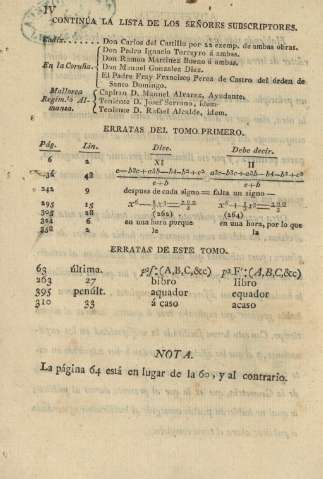 IV
CONTINÚA LA LISTA DE LOS SEÑORES SUBSCRIPTORES.
Cadiz......... Don Carlos del Castillo por 22 exemp. de ambas obras.
Don Pedro Ignacio Torreyro á ambas.
Don Ramon Martinez Bueno á ambas.
En la Coruña. Don Manuel Gonzalez Diez.
El Padre Fray Francisco Perea de Castro del órden de
Santo Domingo.
Mallorca Capitan D. Manuel Alvarez, Ayudante.
Regim.to Al- Teniente D. Josef Serrano, idem
mansa. Teniente D. Rafael Alcalde, idem.
ERRATAS DEL TOMO PRIMERO.
Pág. Lin. Dice. Debe decir.
6 2 XI II
36 42
242 9 despues de cada signo = falta un signo —
295 15
305 28 (262) (264)
324 6 en una hora porque en una hora, por lo que
352 2 le la
ERRATAS DE ESTE TOMO.
63 última. (A,B,C,&c) (A,B,C,&c)
263 27 bibro libro
395 penúlt. aquador equador
310 33 á caso acaso
NOTA.
La página 64 está en lugar de la 60, y al contrario.